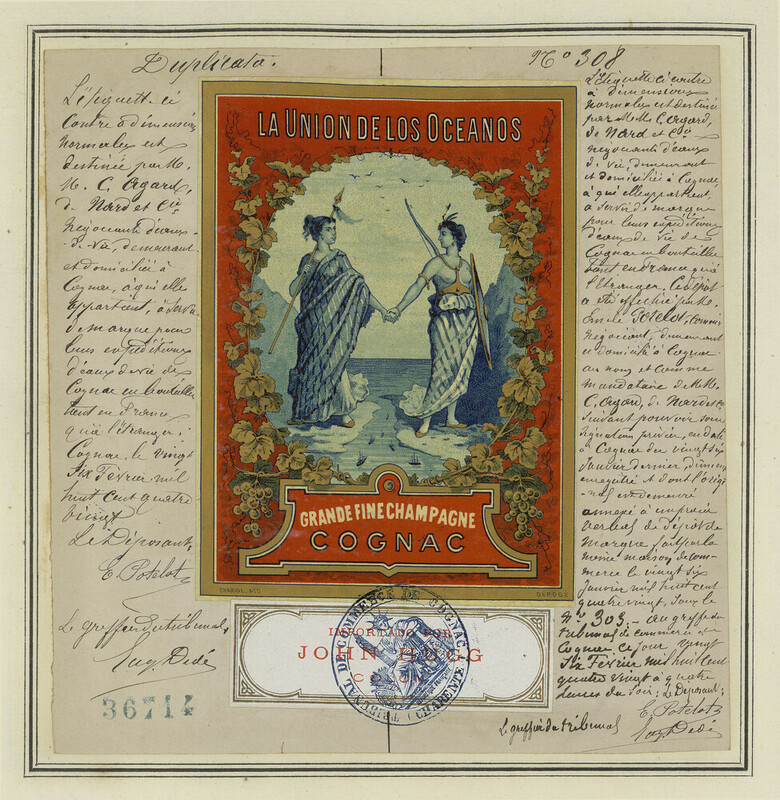 Duplicata.
N° 308
L'étiquette ci
Contre à dimensions
normales est
destinée par M.
M. C. Agard,
de Nard et Cie
négociants d'eaux-
de-vie demeurant
et domiciliés à
Cognac, à qui elle
appartient, à servir
de marque pour
leurs expéditions
d'eaux de vie de
Cognac en bouteilles
tant en France
qu'à l'étranger;
Cognac, le vingt
Six Février mil
huit cent quatre
vingt
Le Déposant,
E. Potelot
Le greffier du tribunal,
Eug. Dedé
36714
LA UNION DE LOS OCEANOS
GRANDE FINE CHAMPAGNE
COGNAC
DÉPOSÉ
IMPORTADO POR
JOHN HOGG
COLON
TRIBUNAL DE COMMERCE DE COGNAC (CHARENTE)
L'étiquette ci contre
à dimensions
normales est destinée
par M.M. C. Agard,
de Nard et Cie
négociants d'eaux
de vie, demeurant
et domiciliés à Cognac,
à qui elle appartient,
à servir de marque
pour leurs expéditions
d'eaux de vie de
Cognac en bouteilles
tant en France qu'à
l'étranger. Ce dépôt
a été effectué par M.
Emile Potelot, Commis
négociant, demeurant
et domicilié à Cognac
au nom et comme
mandataire de M.M.
C. Agard, de Nard et Cie
suivant pouvoir sous
signature privée, en date
à Cognac du vingt six
Janvier dernier, dûment
enregistré et dont l'origi-
nal est demeuré
annexé à un procès
verbal de dépôt de
marque fait par la
même maison de com-
merce le vingt six
Janvier mil huit cent
quatre vingt, sous le
N° 303. au greffe du
tribunal de commerce de
Cognac ce jour vingt
Six Février mil huit cent
quatre vingt à quatre
heures du soir; Le Déposant;
E. Potelot
Le greffier du tribunal
Eug. Dedé